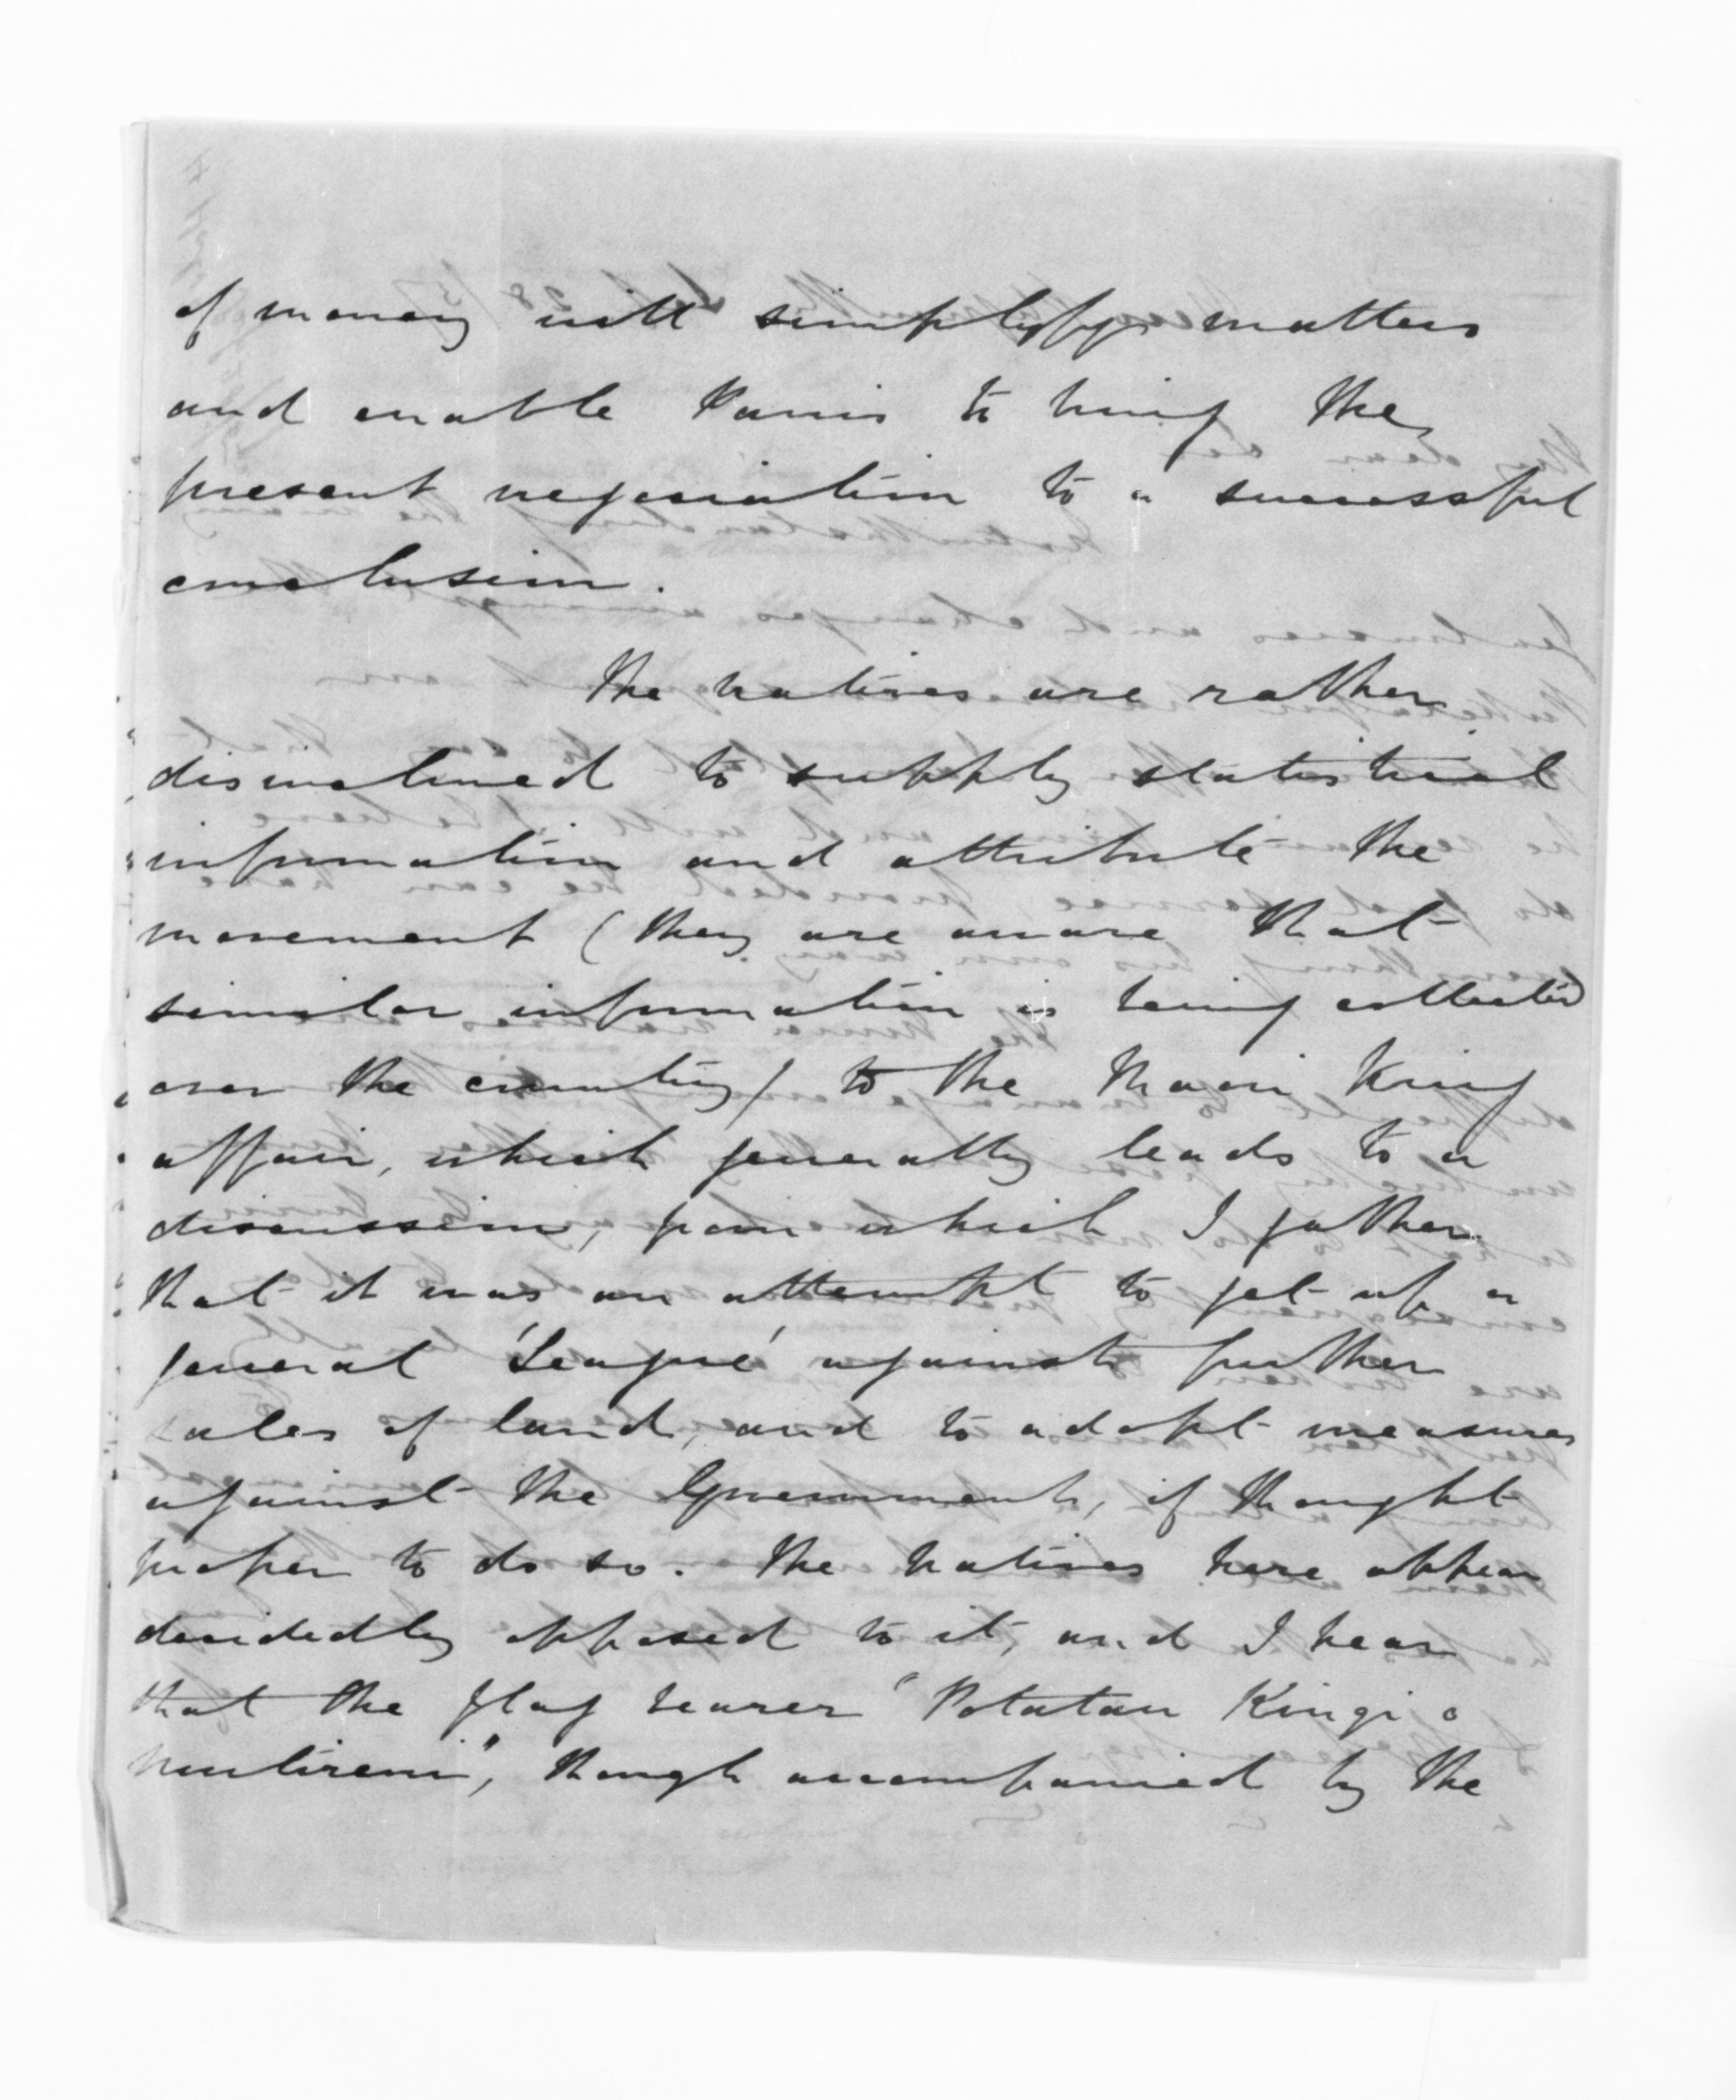 of money will simplify matters
and enable Parris to bring the
present negociation to a successful
conclusion.
The natives are rather
disinclined to supply statistical
information and attribute the
movement (they are aware that
similar information is being collected
over the country) to the Maori King
affair, which generally leads to a
discussion, from which I gather
that it was an attempt to get up a
general 'League' against further
sales of land, and to adopt measures
against the Government, if thought
proper to do so. The natives here appear
decidedly opposed to it, and I hear
that the flag bearer "Potatau Kingi o
Niutireni", though accompanied by the